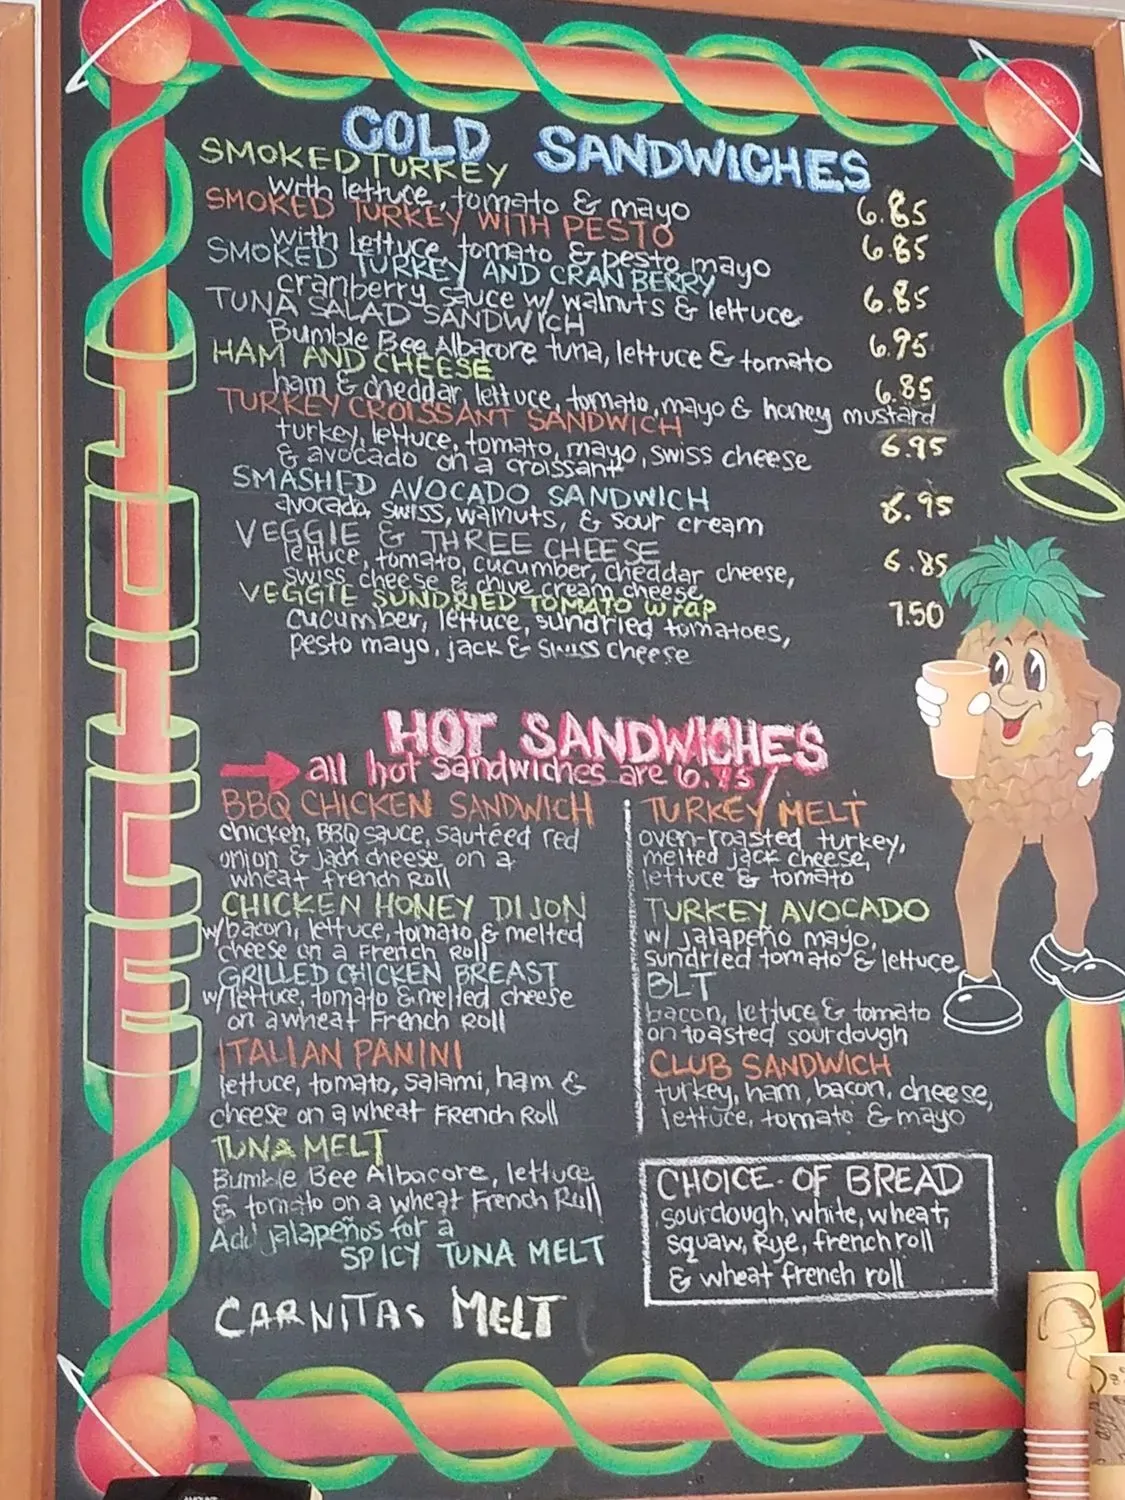 COLD SANDWICHES
SMOKED TURKEY
with lettuce, tomato & mayo 6.85
SMOKED TURKEY WITH PESTO
with lettuce, tomato & pesto mayo 6.85
SMOKED TURKEY AND CRANBERRY
cranberry sauce w/ walnuts & lettuce 6.85
TUNA SALAD SANDWICH
Bumble Bee Albacore tuna, lettuce & tomato 6.95
HAM AND CHEESE 6.85
ham & cheddar, lettuce, tomato, mayo & honey mustard
TURKEY CROISSANT SANDWICH 6.95
turkey, lettuce, tomato, mayo, swiss cheese
& avocado on a croissant
SMASHED AVOCADO SANDWICH
avocado, swiss, walnuts, & sour cream 6.95
VEGGIE & THREE CHEESE
lettuce, tomato, cucumber, cheddar cheese, 6.85
swiss cheese & chive cream cheese
VEGGIE SUNDRIED TOMATO wrap 7.50
cucumber, lettuce, sundried tomatoes,
pesto mayo, jack & swiss cheese
JUICE
HOT SANDWICHES
all hot sandwiches are
BBQ CHICKEN SANDWICH
chicken, BBQ sauce, sautéed red
onion & jack cheese on a
wheat french Roll
CHICKEN HONEY DIJON
w/bacon, lettuce, tomato & melted
cheese on a French Roll
GRILLED CHICKEN BREAST
w/lettuce, tomato & melted cheese
on a wheat French Roll
ITALIAN PANINI
lettuce, tomato, salami, ham &
cheese on a wheat French Roll
TUNA MELT
Bumble Bee Albacore, lettuce
& tomato on a wheat French Roll
Add jalapeños for a
SPICY TUNA MELT
CARNITAS MELT
TURKEY MELT
oven-roasted turkey,
melted jack cheese,
lettuce & tomato
TURKEY AVOCADO
w/ jalapeño mayo,
sundried tomato & lettuce
BLT
bacon, lettuce & tomato
on toasted sourdough
CLUB SANDWICH
turkey, ham, bacon, cheese,
lettuce, tomato & mayo
CHOICE OF BREAD
sourdough, white, wheat,
squaw, Rye, french roll
& wheat french roll